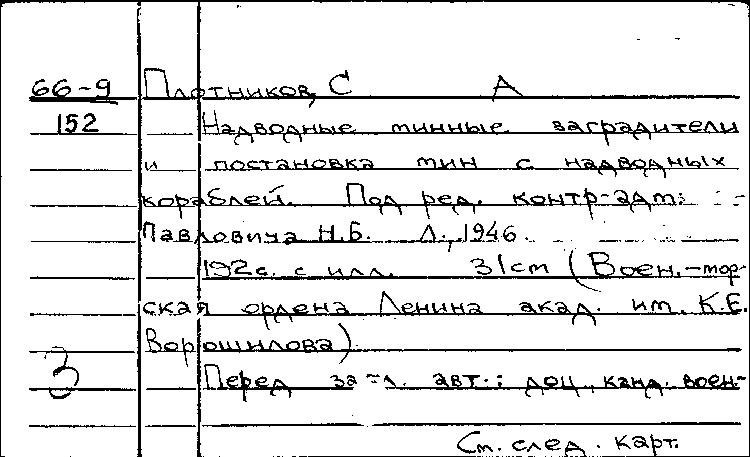 66-9 Плотников, С А
152 Надводные минные заградители
и постановка мин с надводных
кораблей. Под ред. контр-адм:
Павловича Н.Б. Л., 1946.
192 с. с илл. 31cm (Воен.-мор
ская ордена Ленина акад. им. К.Е.
Ворошилова)
3 Перед загл. авт.: доц., канд. воен-
См. след. карт.